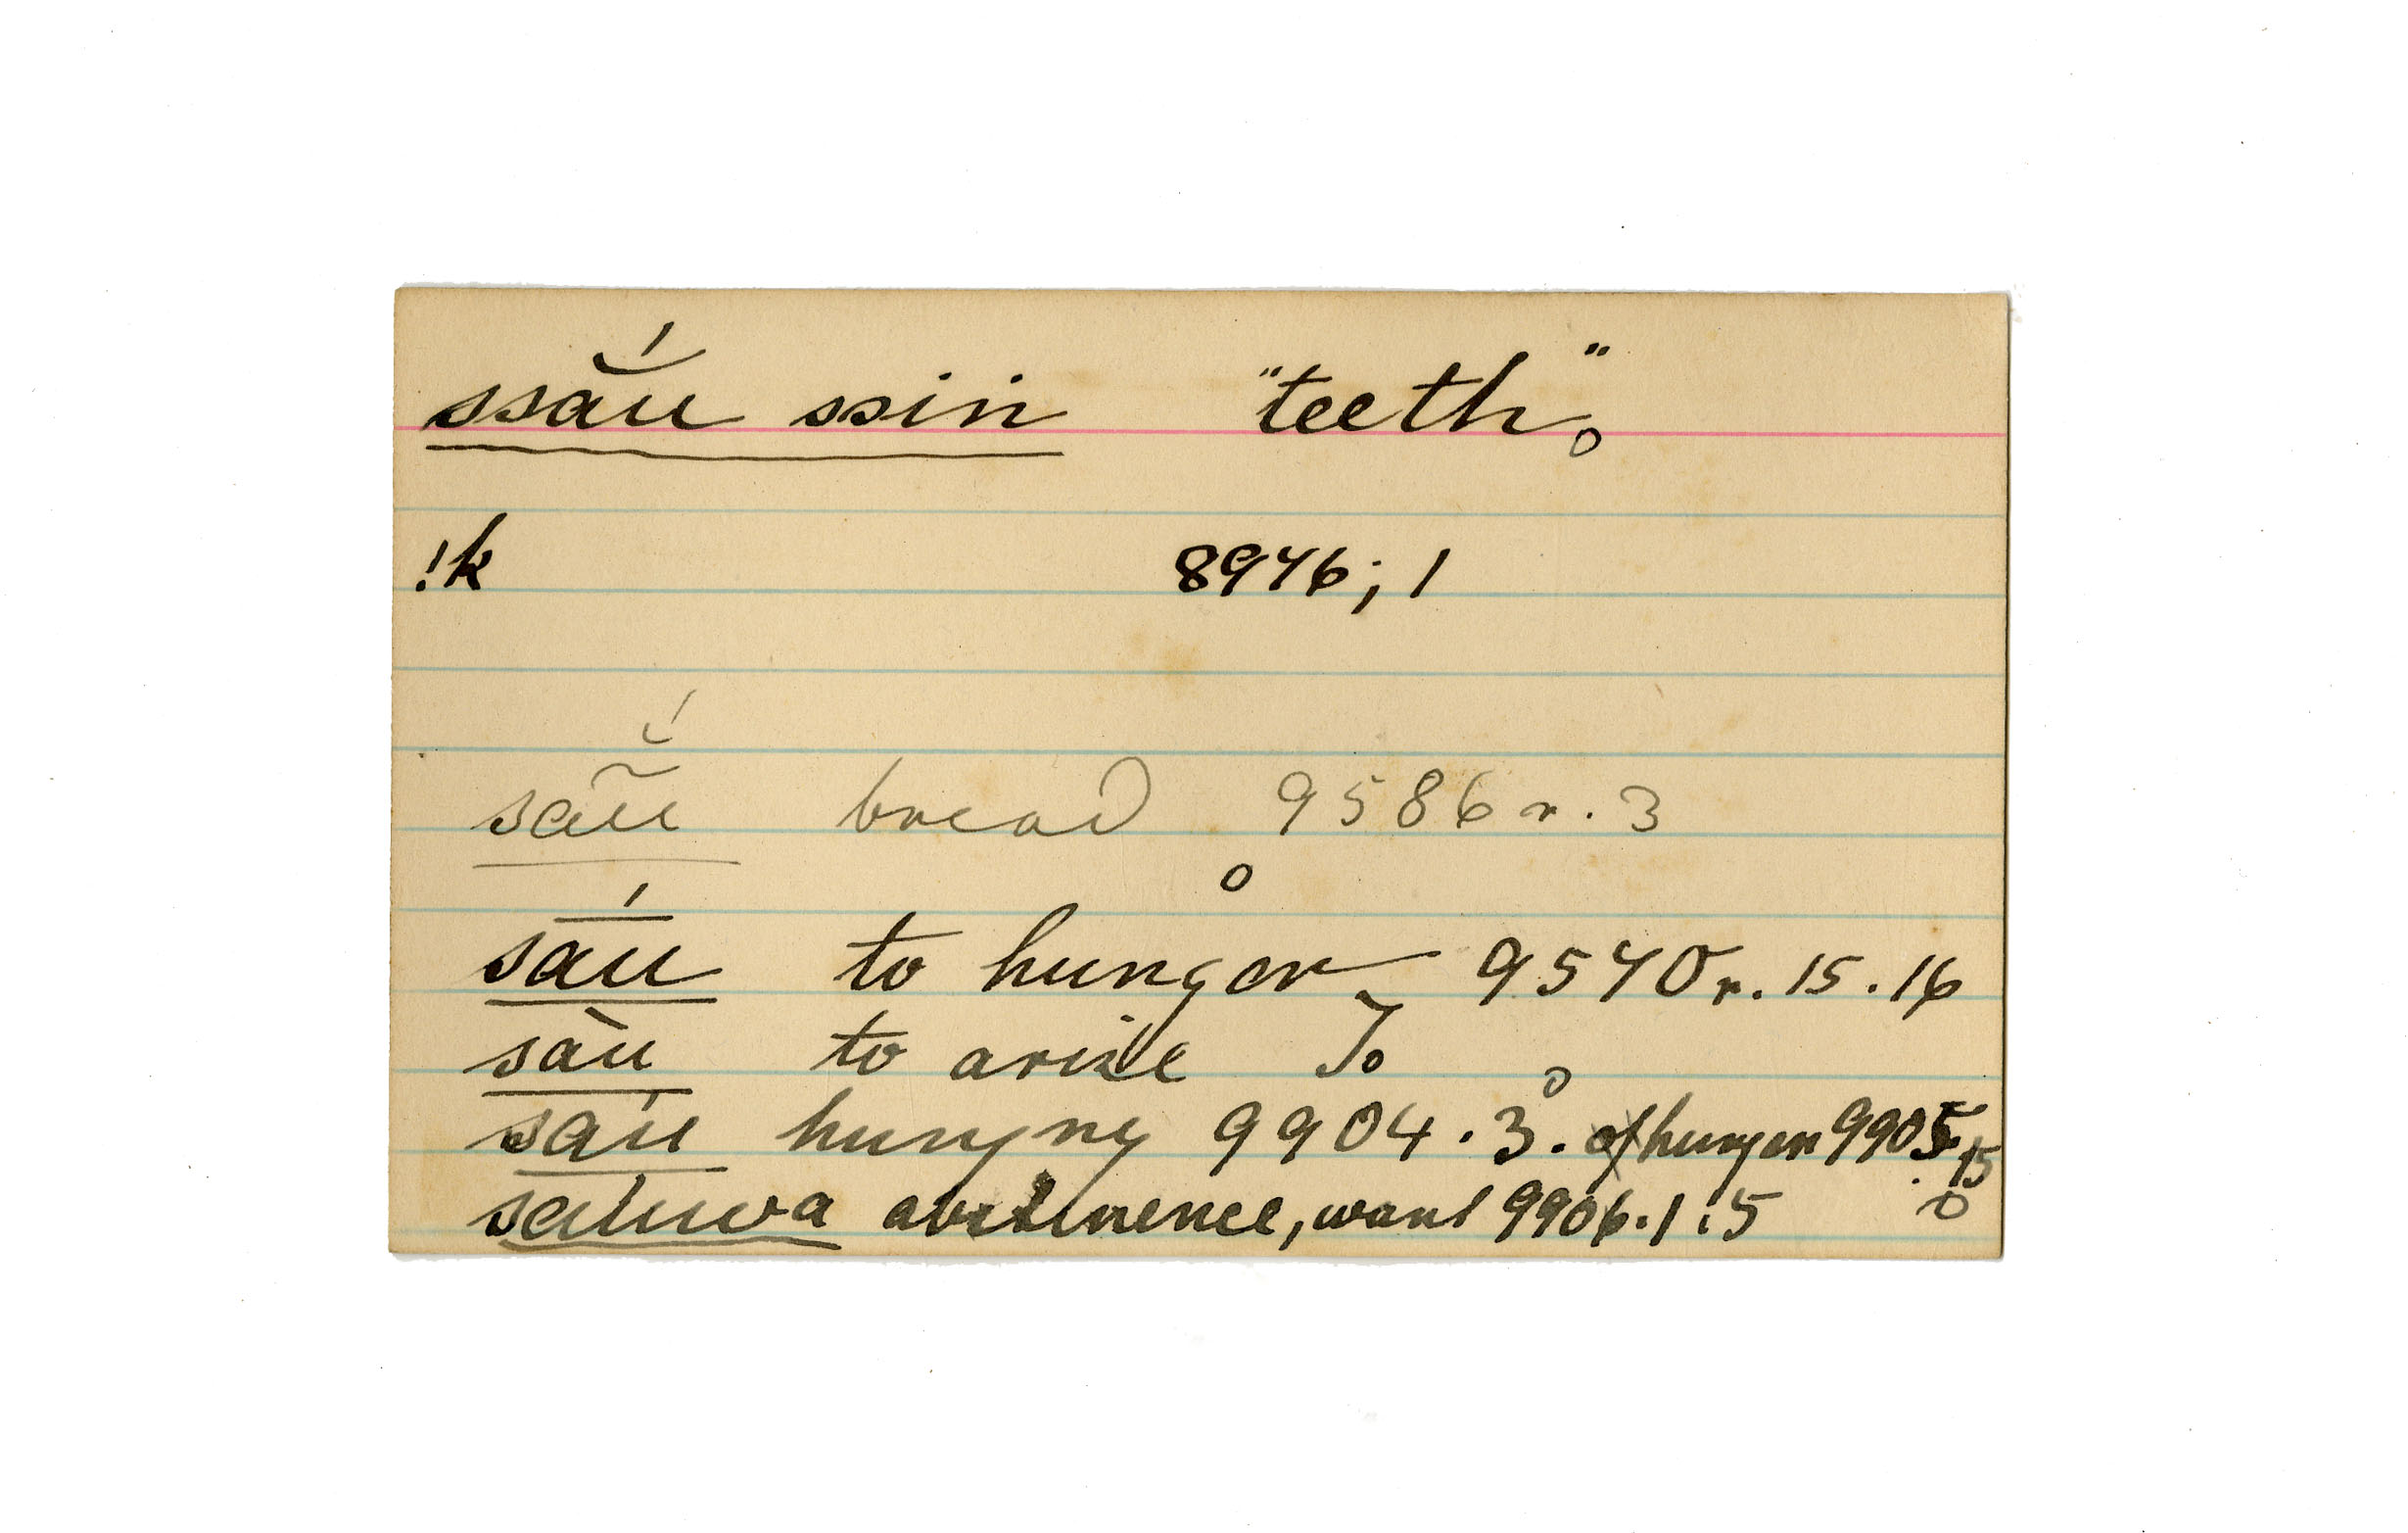 ssắu ssin "teeth".
!k 8946; 1
sau bread 9586 r. 3
sā́u to hunger 9540 r. 15. 16
sàu to arise To
sáu hungry 9904. 3. hunger 9905. 15
sauwa abstinence, want 9906. 1. 5